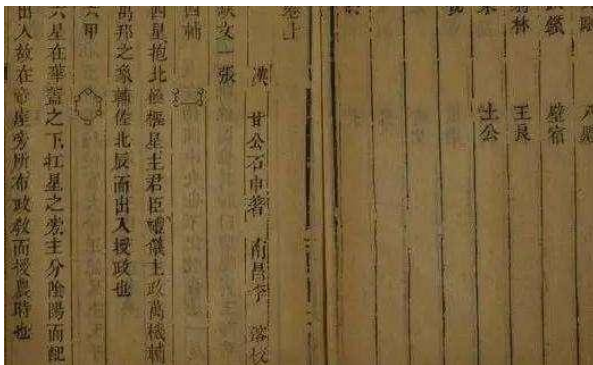 八魁
鑕 壁宿
羽林 王良
土公
卷上
漢 甘公石申著 南昌李
缺文一張
四輔
四星抱北極樞星主君臣禮儀主政萬機輔
萬邦之象輔佐北辰而出入授政也
六甲
六星在華蓋之下杠星之旁主分陰陽而配
出入故在帝座旁所布政教而授農時也